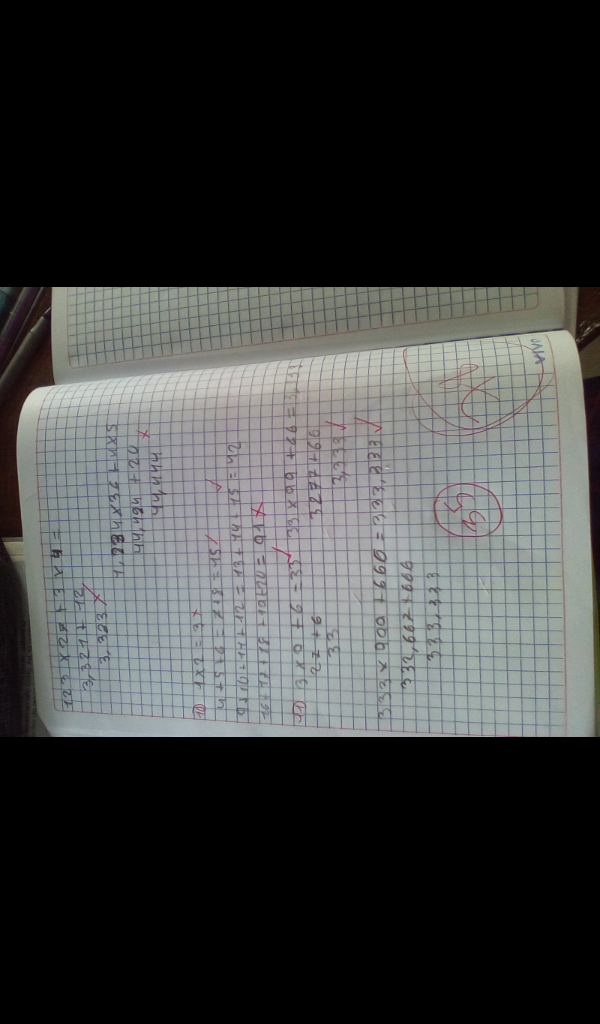 123 x 27 + 3 x 4 =
3,321 + 12
3,323
1,234 x 36 + 4 x 5
44,424 + 20
44,444
10 1 x 2 = 3
4 + 5 + 6 = 7 + 8 = 15
9 + 10 + 11 + 12 = 13 + 14 + 15 = 42
16 + 17 + 18 + 19 + 20 = 91
11 3 x 9 + 6 = 33 33 x 99 + 66 = 3,333
27 + 6 3277 + 66
33 3,333
333 x 999 + 666 = 333,333
332,667 + 666
333,333